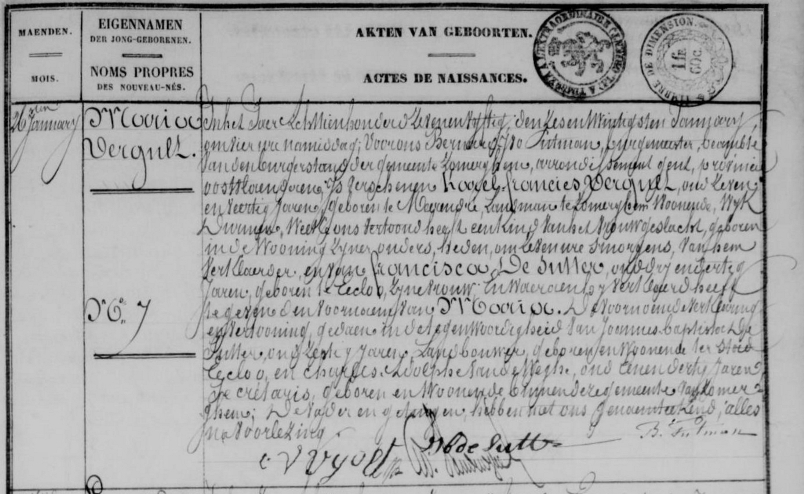 MAENDEN.
MOIS.
EIGENNAMEN
DER JONG-GEBORENEN.
NOMS PROPRES
DES NOUVEAU-NÉS.
AKTEN VAN GEBOORTEN.
ACTES DE NAISSANCES.
TIMBRE DE DIMENSION.
1 fr
26 January
Maria
No. 7
In het Jaer achttienhonderd zevenenvyftig, den zesentwintigsten January
om vier ure namiddag, voor ons Bernard Putman, burgemeester,
van den burgerstand der gemeente Somerghem, arrondissement Gent, provincie
Oostvlaenderen is verschenen francies oud zeven
en veertig Jaren, geboren te Meerendre, Landman te Somerghem woonende, Wyk
welke ons vertoond heeft een kind van het vrouwgeslacht, geboren
in de wooning zyner ouders, heden, om zeven ure s'morgens, van hem
verklaerder, en van francisca De Sutter, oud dry en dertig
Jaren, geboren te Eecloo, zyne vrouw; en waeraen hy verklaerd heeft
te geven den voornaem van Maria. De voornoemde verklaring
en vertooning, gedaen in de tegenwoordigheid van Joannes Baptista De
Sutter, oud zestig Jaren, Landbouwer, geboren en woonende ter stad
Eecloo, en Charles Adolphe Vande oud eenendertig Jaren,
Secretaris, geboren en woonende binnen deze gemeente van Somer-
ghem; De vader en getuigen, hebben met ons genaemteekend, alles
na voorlezing.
De Sutter
B. Putman